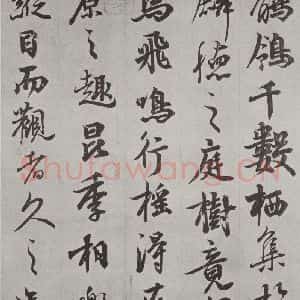 鶺鴒千數栖集
麟德之庭樹竟
焉飛鳴行搖得
原之趣昆季相樂
縱目而觀者久之
Shufawang.CN